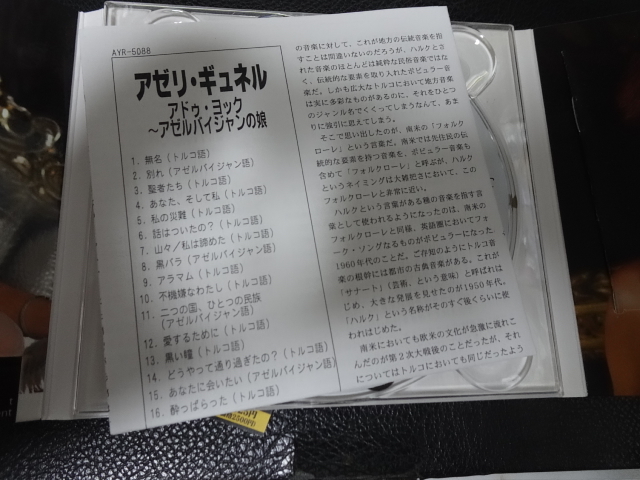 AYR-5088
アゼリ・ギュネル
アドゥ・ヨック
～アゼルバイジャンの娘
1. 無名（トルコ語）
2. 別れ（アゼルバイジャン語）
3. 聖者たち（トルコ語）
4. あなた、そして私（トルコ語）
5. 私の災難（トルコ語）
6. 話はついたの？（トルコ語）
7. 山々／私は諦めた（トルコ語）
8. 黒バラ（アゼルバイジャン語）
9. アラマム（トルコ語）
10. 不機嫌なわたし（トルコ語）
11. 二つの国、ひとつの民族
（アゼルバイジャン語）
12. 愛するために（トルコ語）
13. 黒い瞳（トルコ語）
14. どうやって通り過ぎたの？（トルコ語）
15. あなたに会いたい（アゼルバイジャン語）
16. 酔っぱらった（トルコ語）
の音楽に対して、これが地方の伝統音楽を指
すことは間違いないのだろうが、ハルクとさ
れた音楽のほとんどは純粋な民俗音楽ではな
く、伝統的な要素を取り入れたポピュラー音
楽だ。しかも広大なトルコにおいて地方音楽
は実に多彩なものがあるのに、それをひとつ
のジャンル名でくくってしまうなんて、あま
りに強引に思えてしまう。
そこで思い出したのが、南米の「フォルク
ローレ」という言葉だ。南米では先住民の伝
統的な要素を持つ音楽を、ポピュラー音楽も
含めて「フォルクローレ」と呼ぶが、ハルク
というネイミングは大雑把さにおいて、この
フォルクローレと非常に近い。
ハルクという言葉がある種の音楽を指す言
葉として使われるようになったのは、南米の
フォルクローレと同様、英語圏においてフォ
ーク・ソングなるものがポピュラーになった
1960年代のことだ。ご存知のようにトルコ音
楽の根幹には都市の古典音楽がある。これが
「サナート」（芸術、という意味）と呼ばれは
じめ、大きな発展を見せたのが1950年代。
「ハルク」という名称がそのすぐ後くらいに使
われはじめた。
南米においても欧米の文化が急激に流れこ
んだのが第2次大戦後のことだったが、それ
についてはトルコにおいても同じだったよう